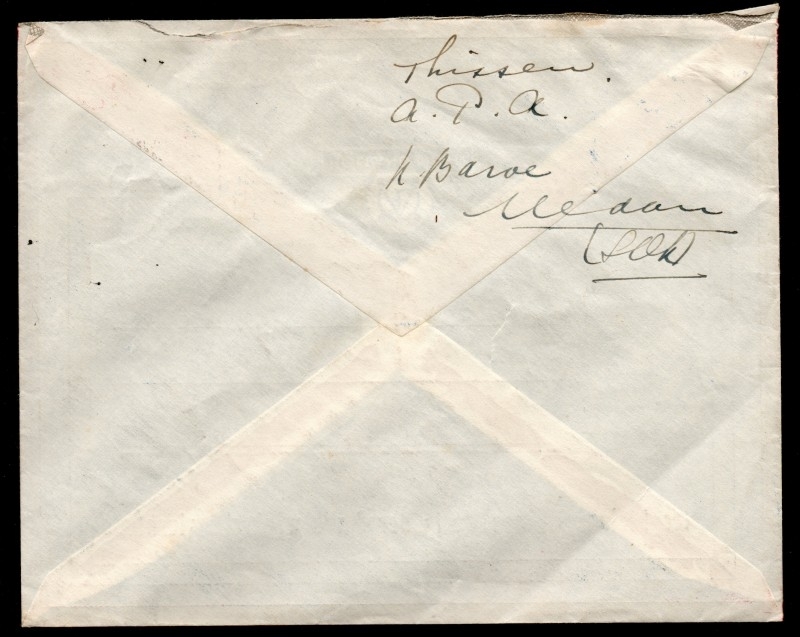 Thissen.
A. P. A.
K. Baroe
Medan
(SOK)